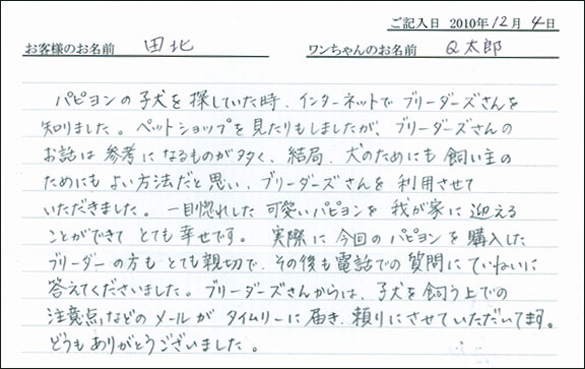 ご記入日 2010年12月4日
お客様のお名前 田北 ワンちゃんのお名前 Q太郎
パピヨンの子犬を探していた時、インターネットでブリーダーズさんを
知りました。ペットショップを見たりもしましたが、ブリーダーズさんの
お話は参考になるものが多く、結局、犬のためにも飼い主の
ためにもよい方法だと思い、ブリーダーズさんを利用させて
いただきました。一目惚れした可愛いパピヨンを我が家に迎える
ことができてとても幸せです。実際に今回のパピヨンを購入した
ブリーダーの方もとても親切で、その後も電話での質問にていねいに
答えてくださいました。ブリーダーズさんからは、子犬を飼う上での
注意点などのメールがタイムリーに届き、頼りにさせていただいてます。
どうもありがとうございました。